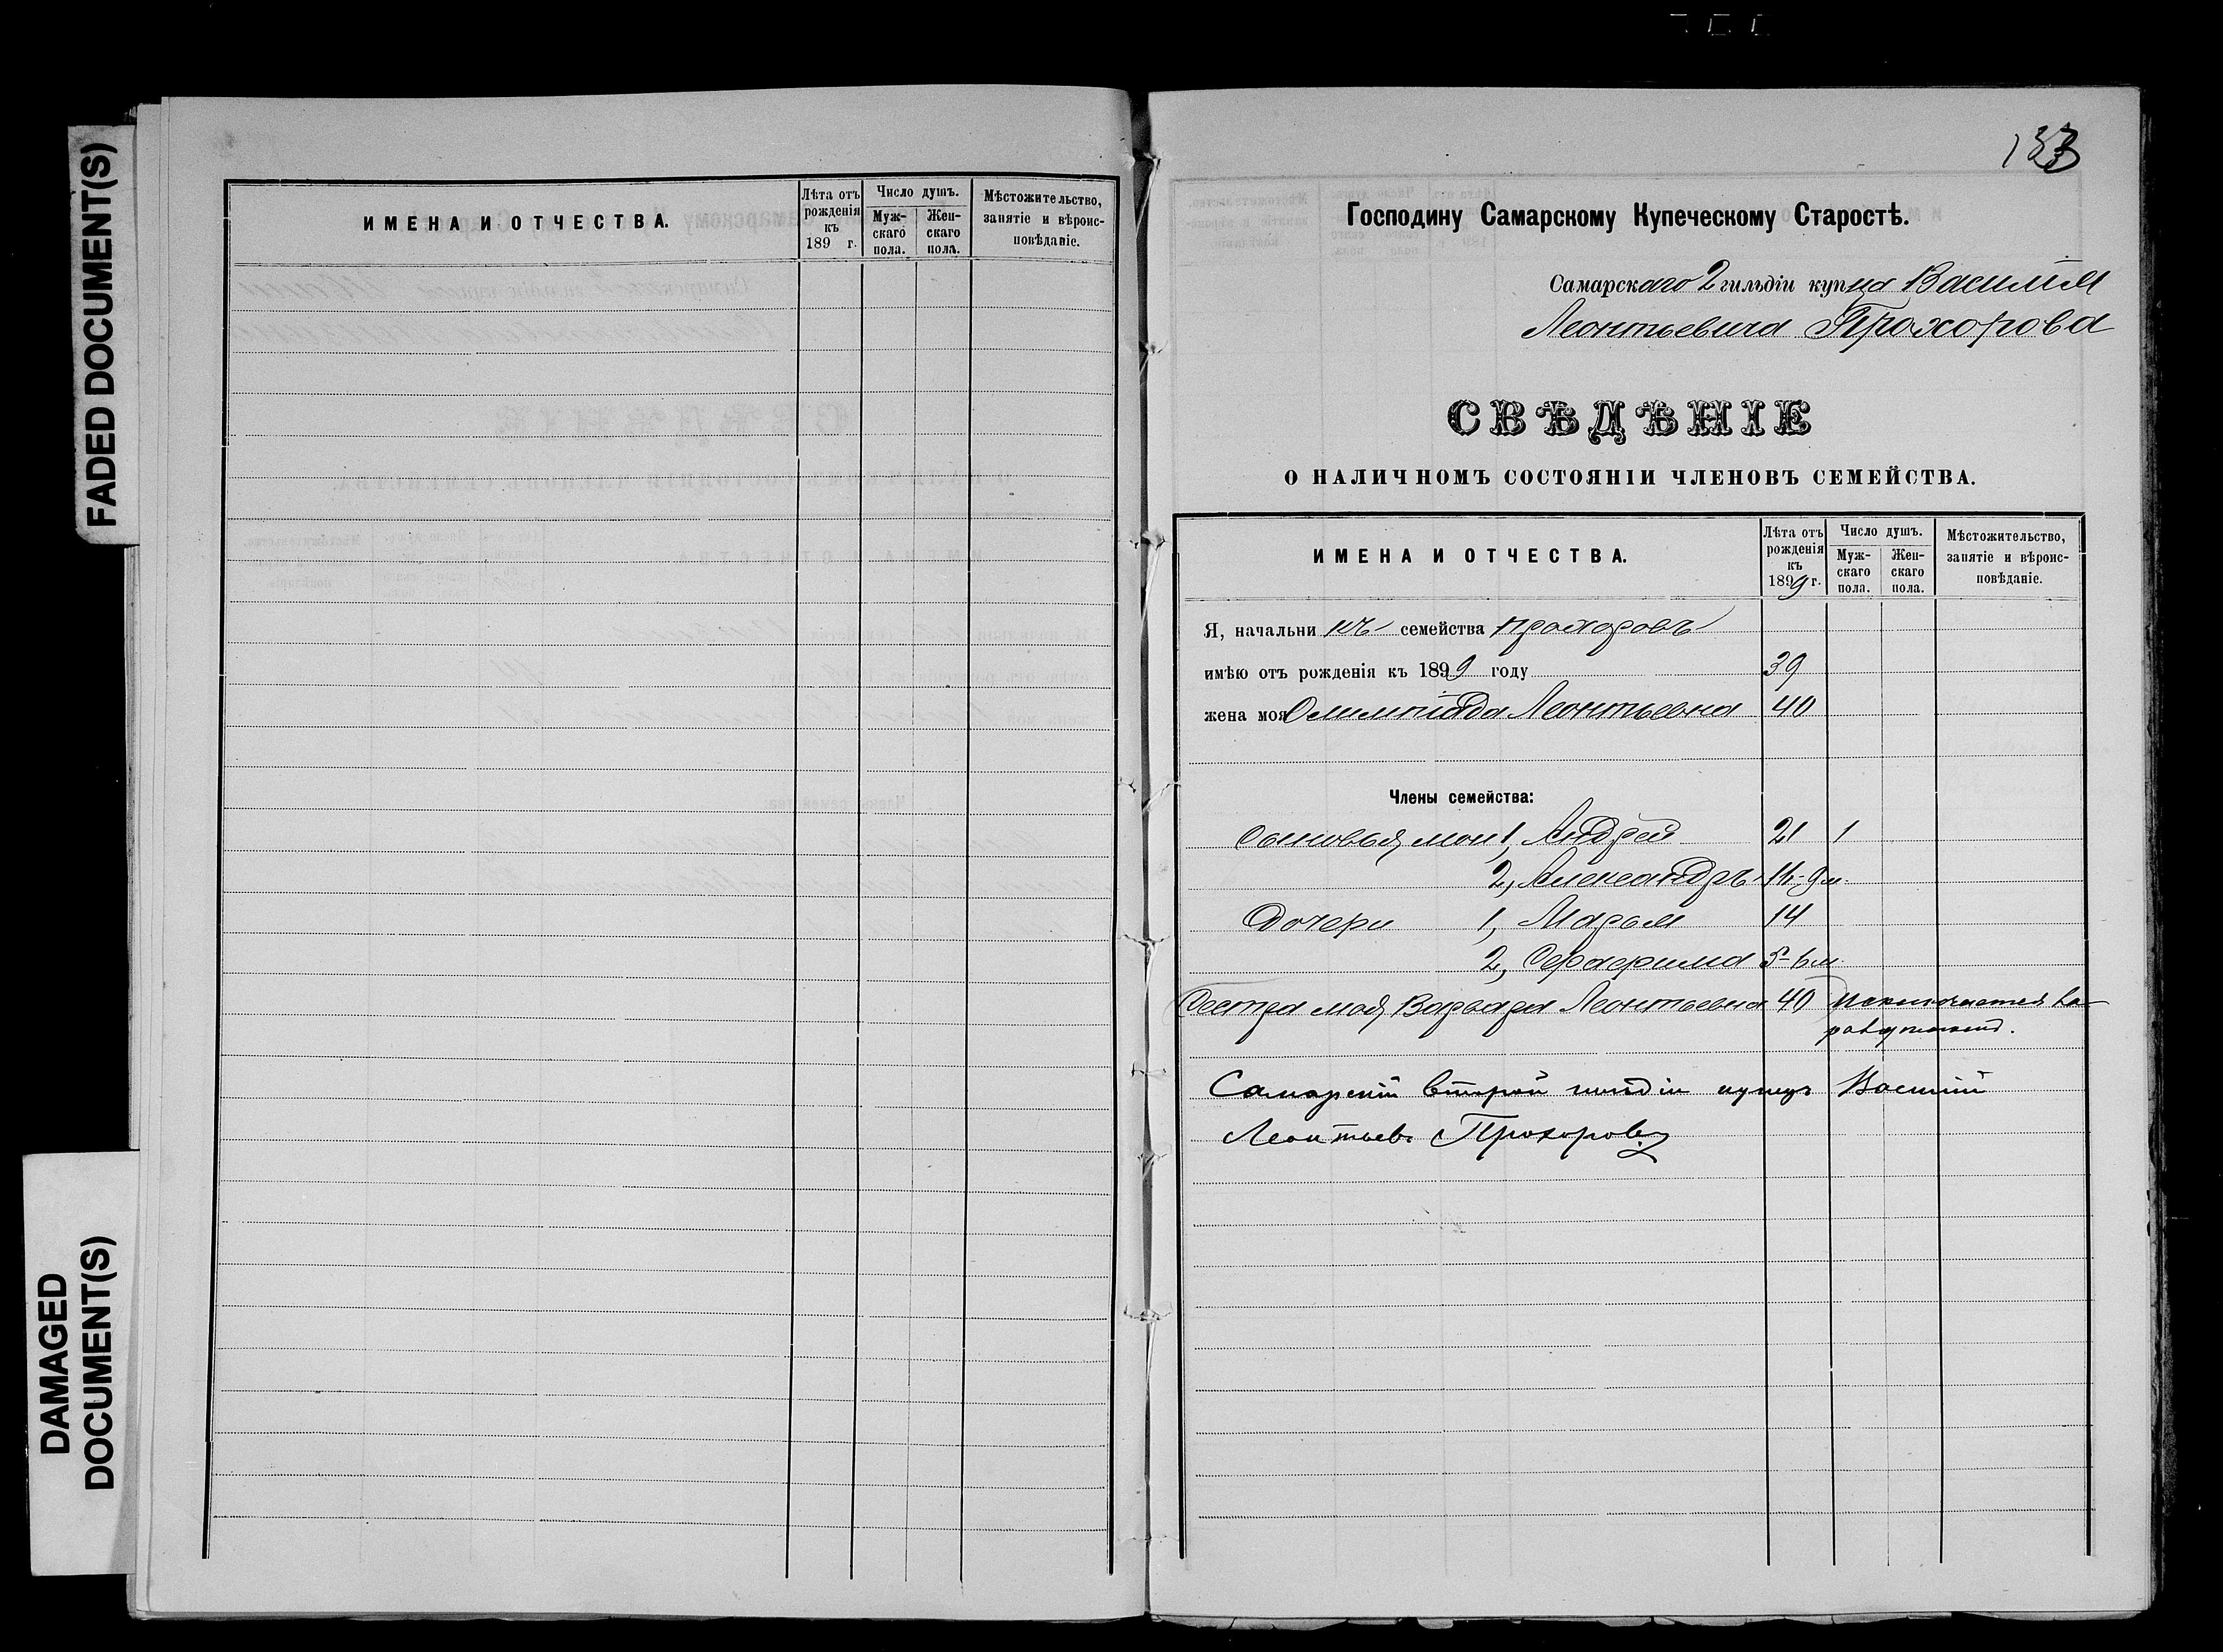 FADED DOCUMENT(S)
DAMAGED
DOCUMENT(S)
ИМЕНА И ОТЧЕСТВА.
Лѣта отъ рожденія къ 189 г.
Число душъ.
Мужскаго пола.
Женскаго пола.
Мѣстожительство, занятіе и вѣроисповѣданіе.
133
Господину Самарскому Купеческому Старостѣ.
Самарскаго 2 гильдіи купца Василія
Леонтьевича Прохорова
СВѢДѢНІЕ
О НАЛИЧНОМЪ СОСТОЯНІИ ЧЛЕНОВЪ СЕМЕЙСТВА.
ИМЕНА И ОТЧЕСТВА.
Лѣта отъ рожденія къ 1899 г.
Число душъ.
Мужскаго пола.
Женскаго пола.
Мѣстожительство, занятіе и вѣроисповѣданіе.
Я, начальникъ семейства Прохоровъ
имѣю отъ рожденія къ 1899 году 39
жена моя Олимпіада Леонтьевна 40
Члены семейства:
Сыновья мои 1, Андрей 21 1
2, Александръ 9 м.
Дочери 1, Марья 14
2, Серафима 5 - 6 м.
Сестра моя Варвара Леонтьевна 40 Исключается
Самарскій второй гильдіи купецъ Василій
Леонтьевъ Прохоровъ